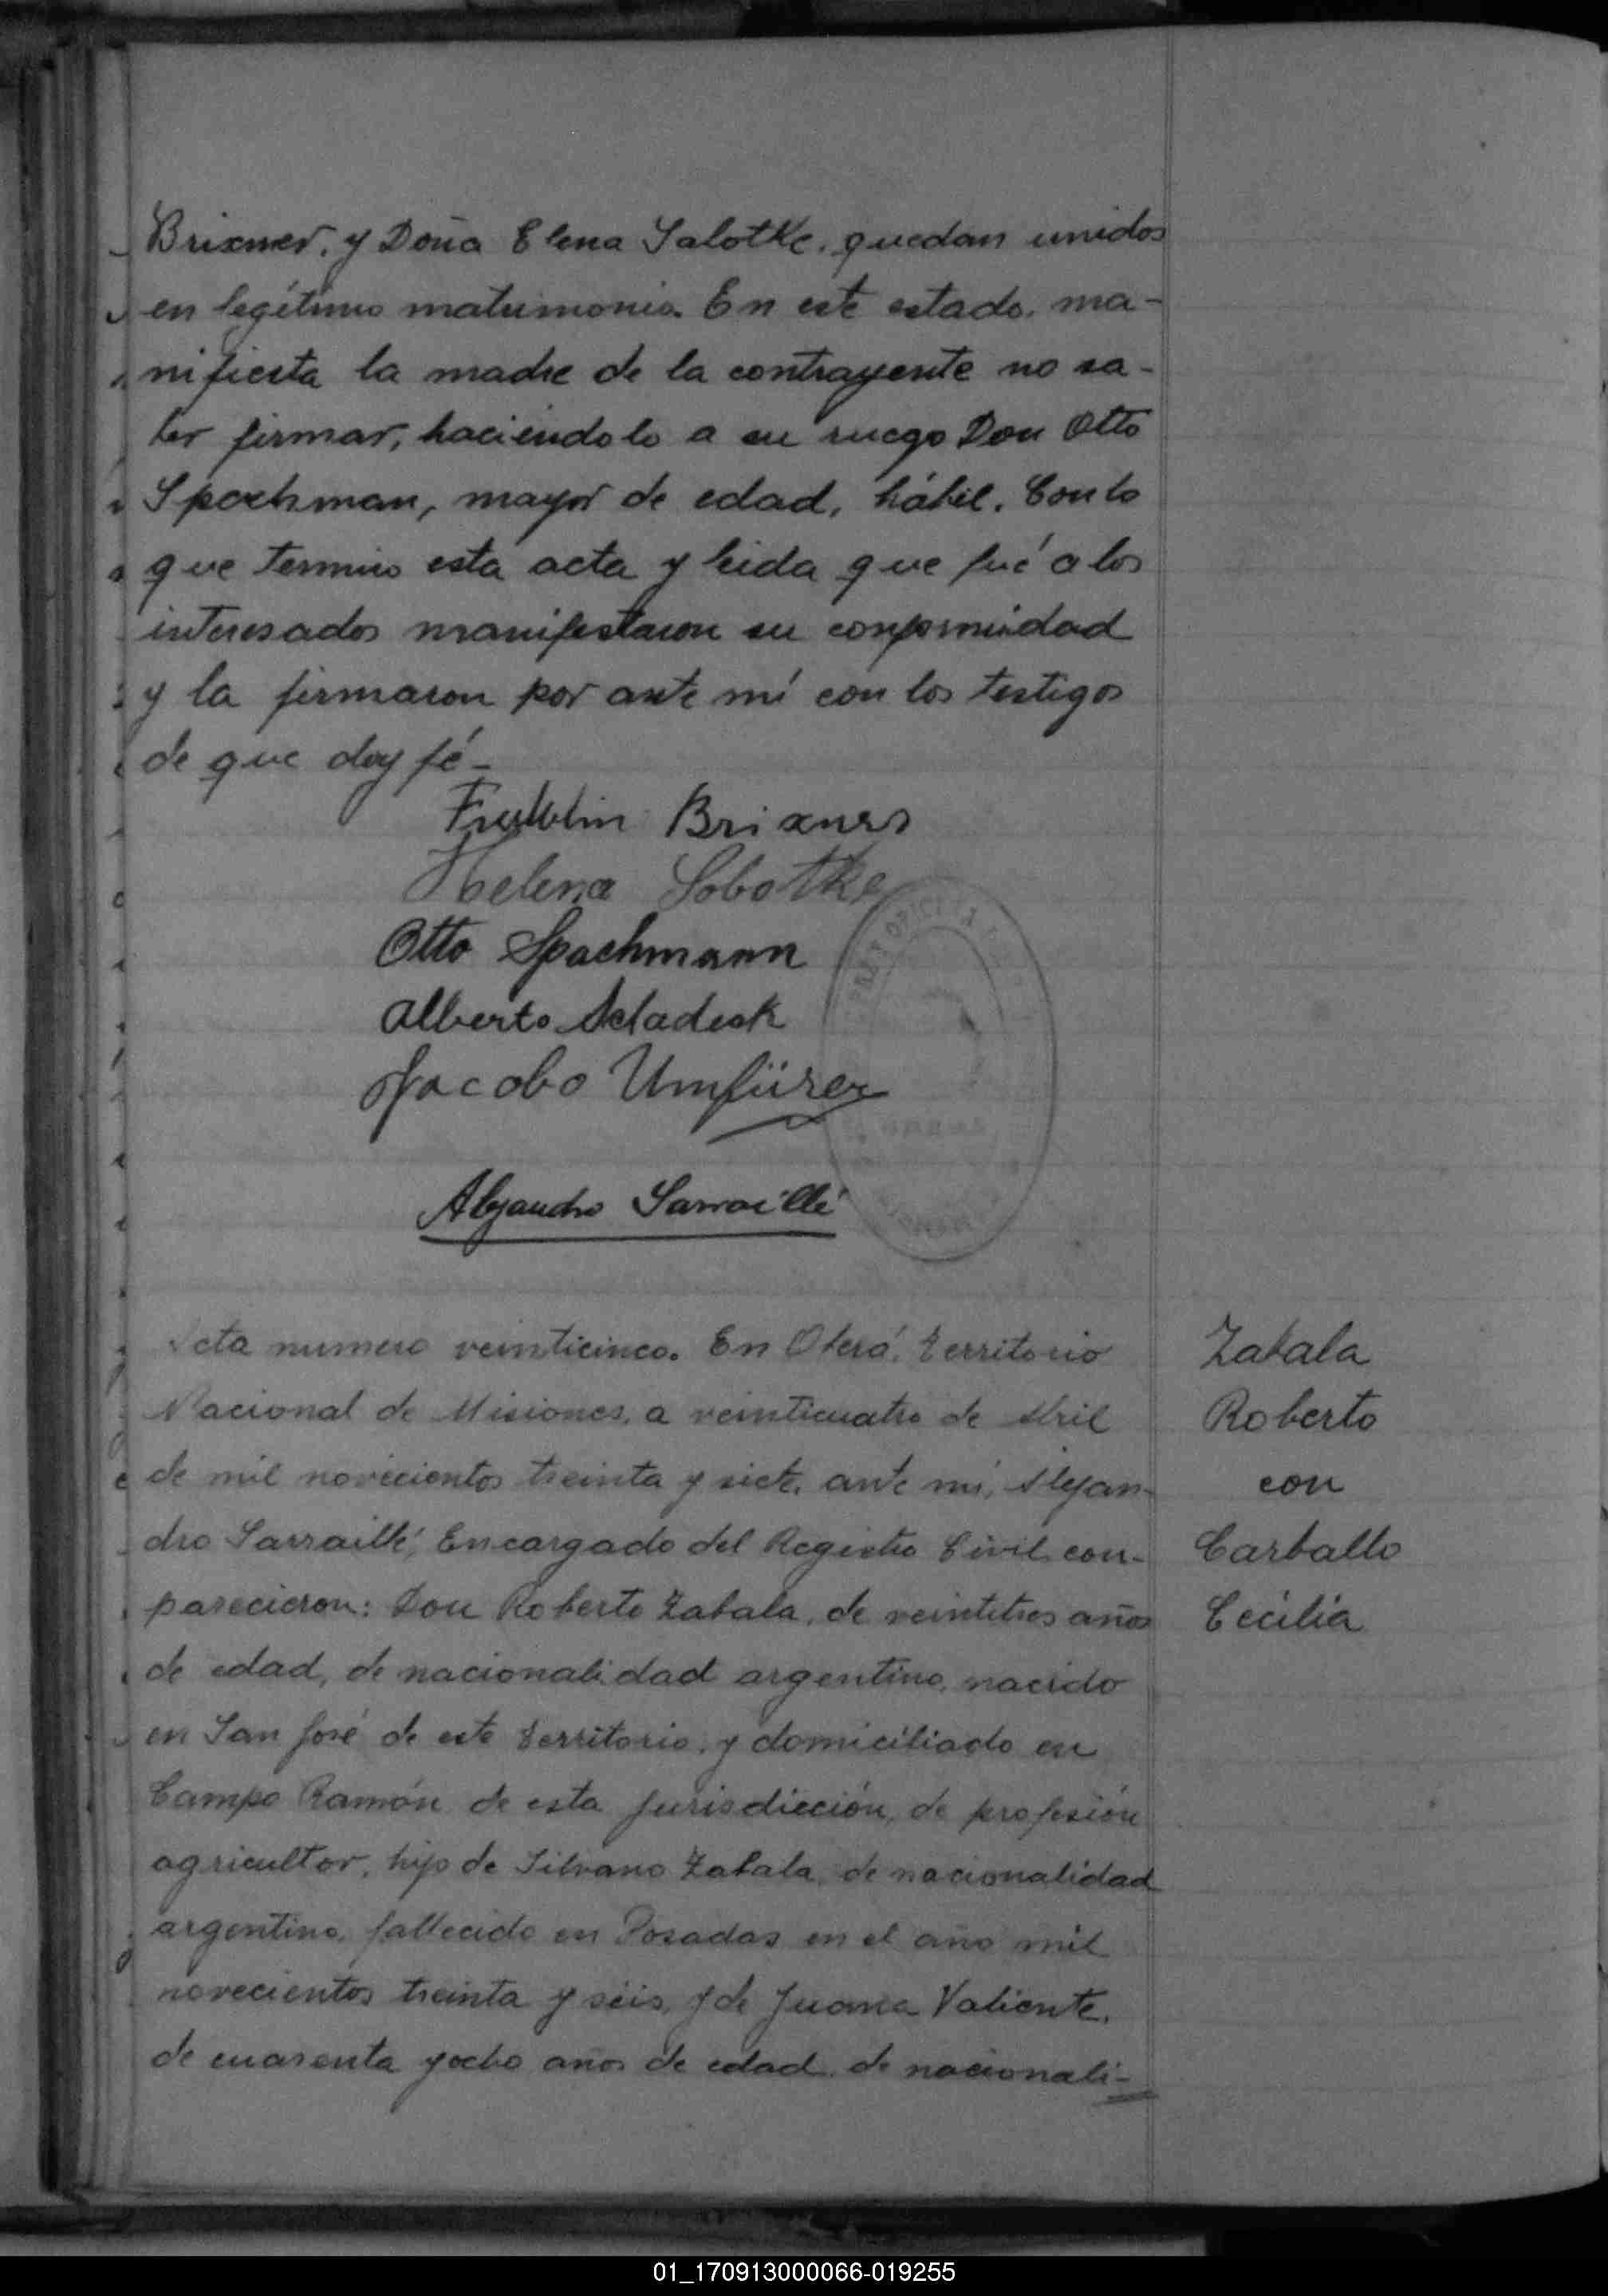 Brixner, y Doña Elena Salotke, quedan unidos
en legítimo matrimonio. En este estado, ma-
nifiesta la madre de la contrayente no sa-
ber firmar, haciéndolo a su ruego Don Otto
Spachman, mayor de edad, hábil. Con lo
que termino esta acta y leida que fué a los
interesados manifestaron su conformidad
y la firmaron por ante mí con los testigos
de que doy fé-
Brixner
Helena Sobotke
Otto Spachmann
Alberto
Jacobo Umfürer
Alejandro Sarraillé
Acta numero veinticinco. En Oberá, Territorio
Nacional de Misiones, a veinticuatro de Abril
de mil novecientos treinta y siete, ante mí, Alejan-
dro Sarraillé, Encargado del Registro Civil com-
parecieron: Don Roberto Zabala, de veintitres años
de edad, de nacionalidad argentino, nacido
en San José de este Territorio, y domiciliado en
Campo Ramón de esta Jurisdicción, de profesión
agricultor, hijo de Silvano Zabala, de nacionalidad
argentino, fallecido en Posadas en el año mil
novecientos treinta y seis, y de Juana Valiente,
de cuarenta y ocho años de edad, de nacionali-
Zabala
Roberto
con
Carballo
Cecilia
01_170913000066-019255